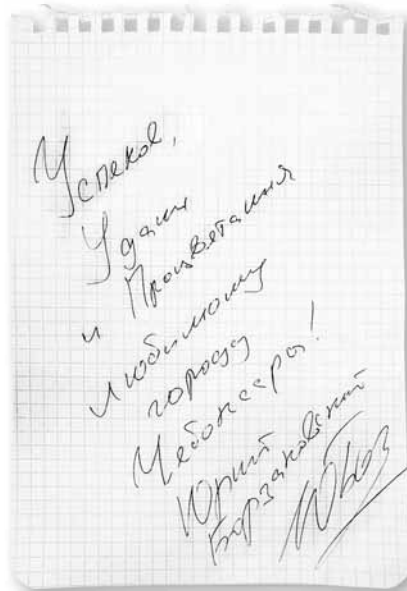 Успехов,
Удачи
и Процветания
любимому
городу
Чебоксары!
Юрий
Борзаковский